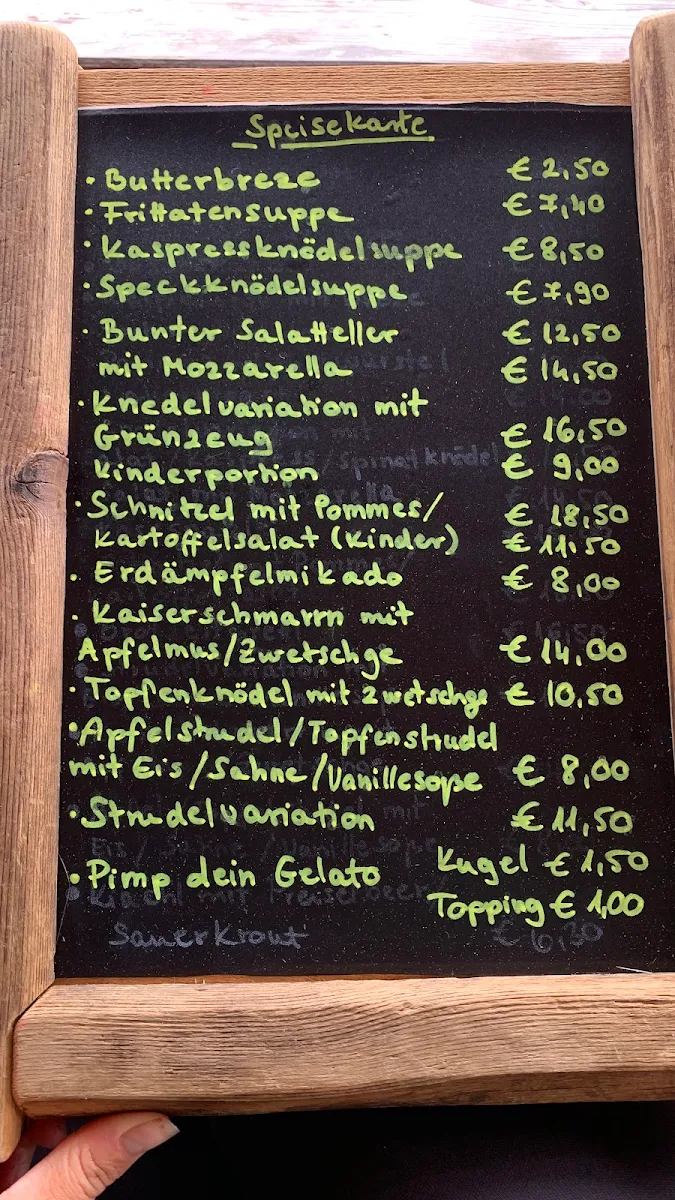 Speisekarte
• Butterbreze € 2,50
• Frittatensuppe € 7,40
• Kaspressknödelsuppe € 8,50
• Speckknödelsuppe € 7,90
• Bunter Salatteller € 12,50
mit Mozzarella € 14,50
• Knedelvariation mit
Grünzeug € 16,50
Kinderportion € 9,00
• Schnitzel mit Pommes/ € 18,50
Kartoffelsalat (Kinder) € 11,50
• Erdämpfelmikado € 8,00
• Kaiserschmarrn mit
Apfelmus/Zwetschge € 14,00
• Topfenknödel mit Zwetschge € 10,50
• Apfelstrudel/Topfenstrudel
mit Eis/Sahne/Vanillesoße € 8,00
• Strudelvariation € 11,50
• Pimp dein Gelato Kugel € 1,50
Topping € 1,00
Sauerkraut € 6,30